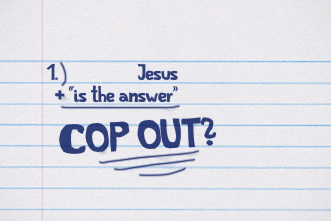 1.) Jesus
+ "is the answer"
COP OUT?